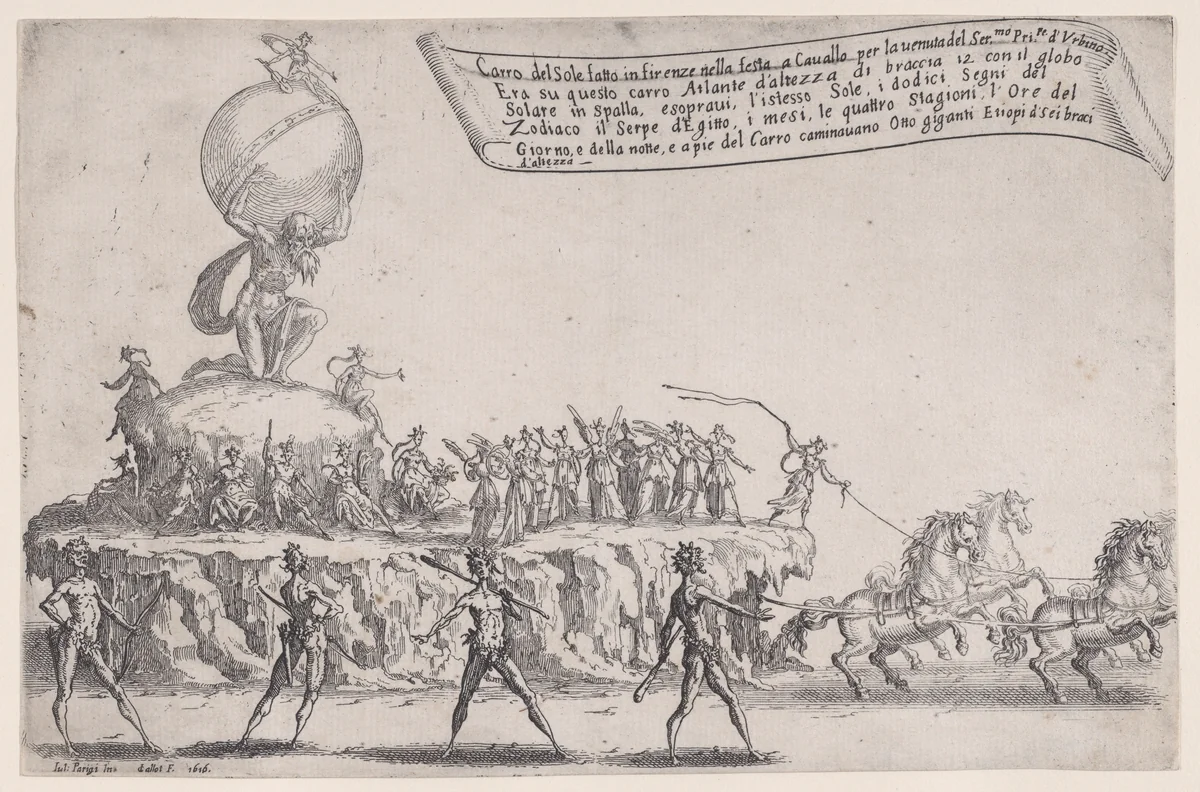 Carro del Sole fatto in firenze nella festa a Cauallo per la uenuta del Ser.mo Pri.pe d'Vrbino.
Era su questo carro Atlante d'altezza di braccia 12 con il globo
Solare in Spalla, esopraui, l'istesso Sole, i dodici Segni del
Zodiaco il Serpe d'Egitto, i mesi, le quattro Stagioni, l'Ore del
Giorno, e della notte, e a pie del Carro caminauano Otto giganti Etiopi d'sei braci
d'altezza —
Iul: Parigi In. Callot F. 1616.